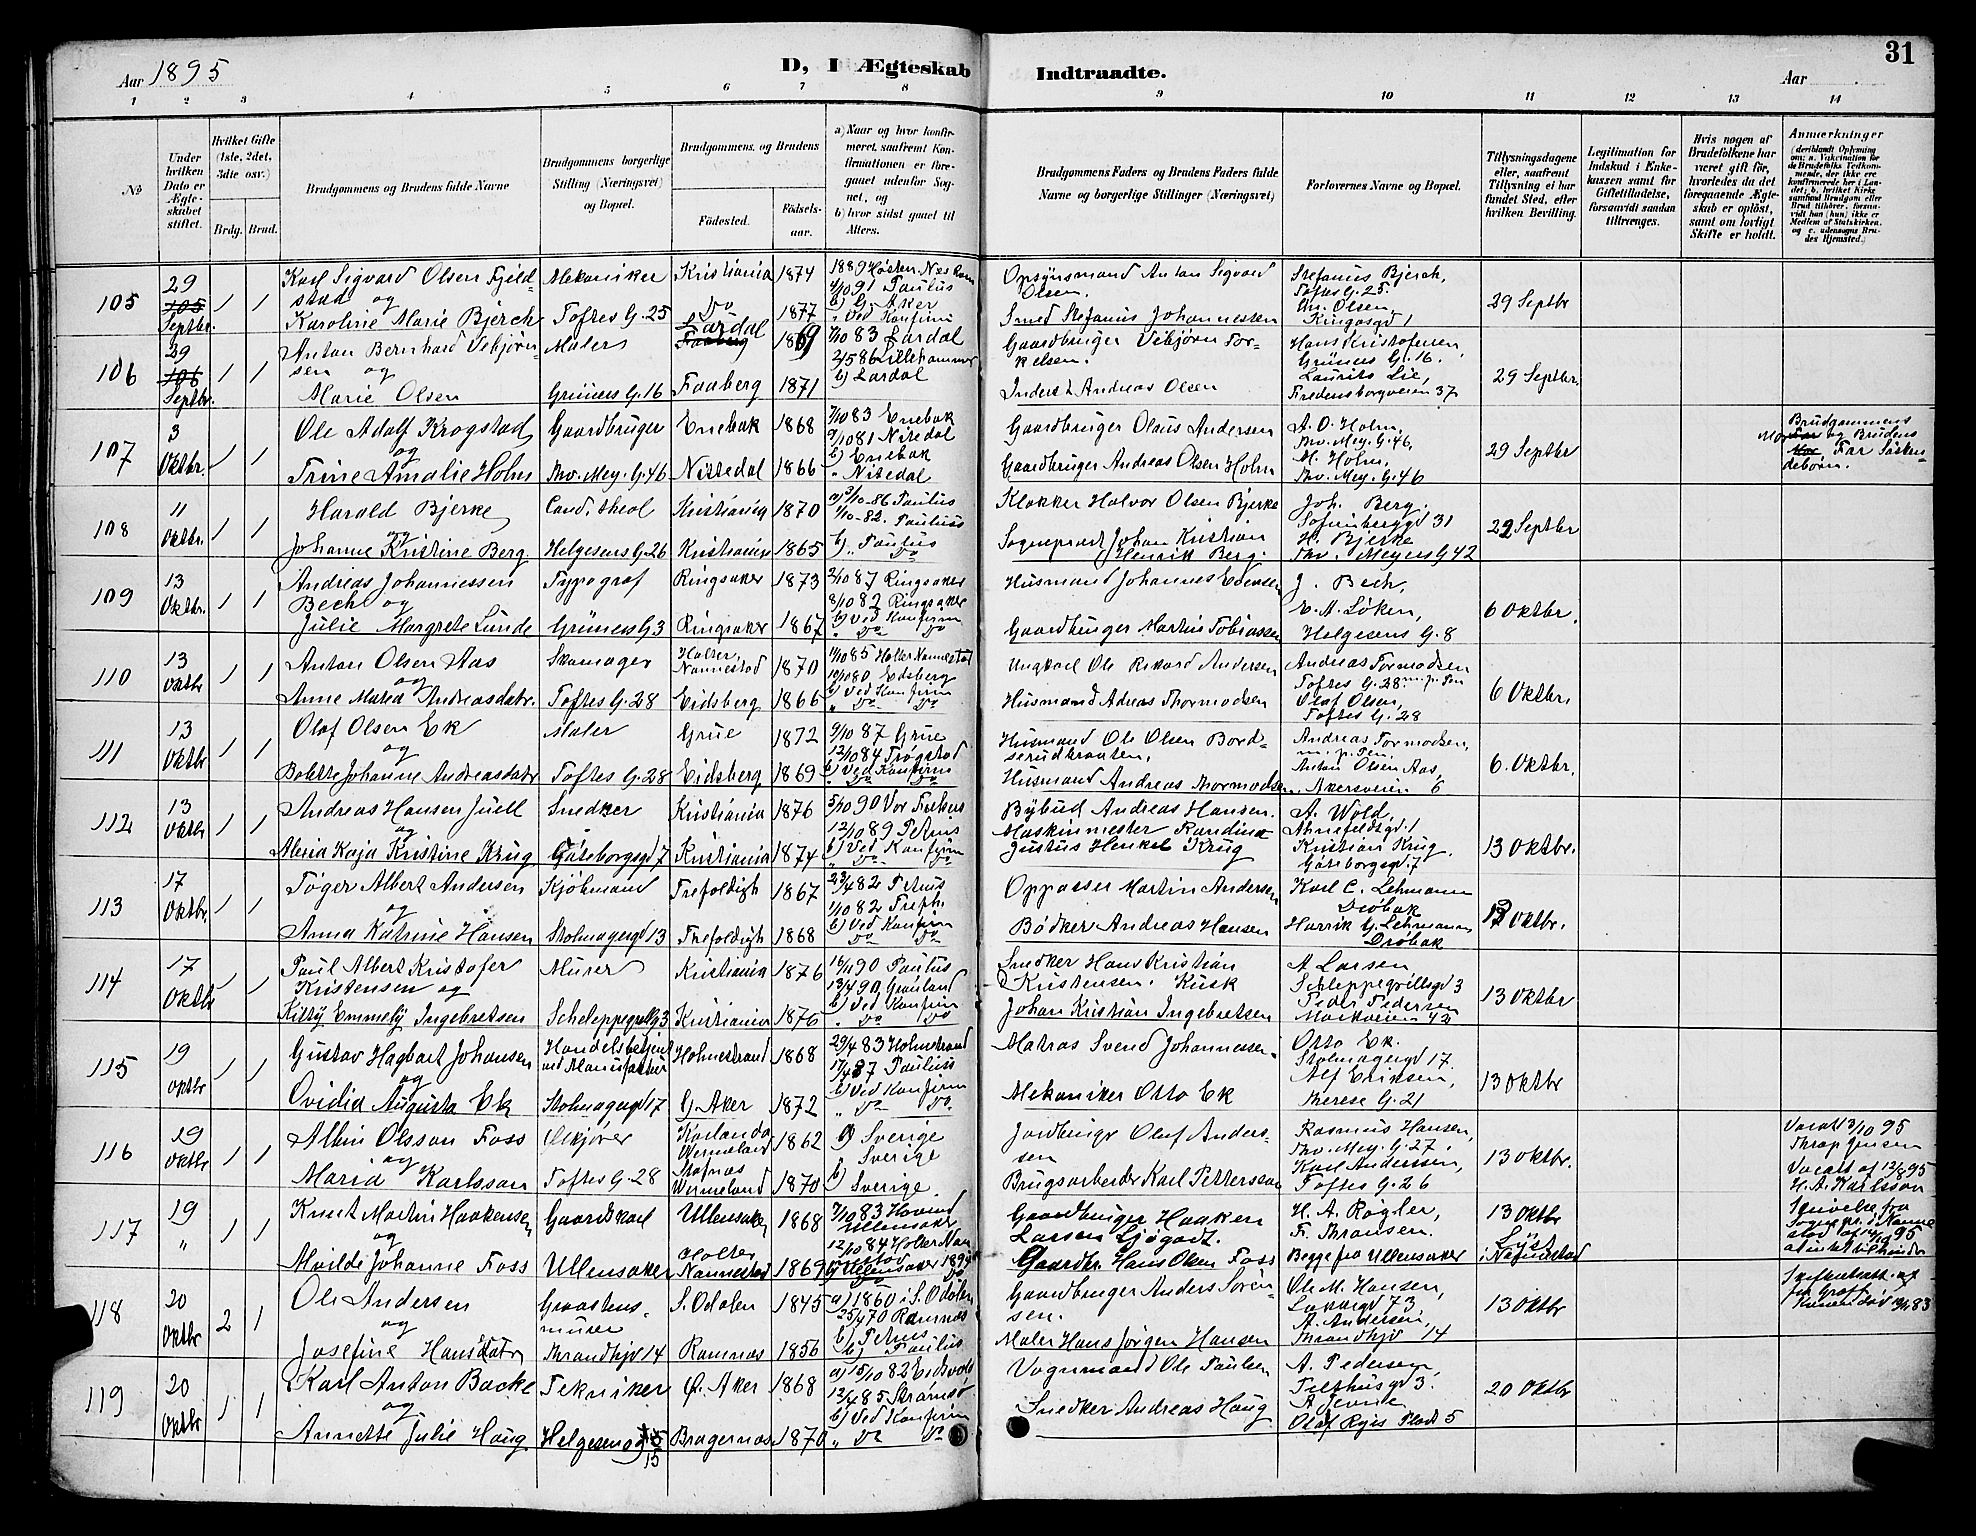 Aar 1895
D, I Ægteskab Indtraadte.
31
Aar
1 2 3 4 5 6 7 8 9 10 11 12 13 14
№
Under hvilken Dato er Ægteskabet stiftet.
Hvilket Gifte (1ste, 2det, 3dte osv.)
Brdg. Brud.
Brudgommens og Brudens fulde Navne
Brudgommens borgerlige Stilling (Næringsvei) og Bopæl.
Brudgommens. og Brudens
Fødested. Fødselsaar.
a) Naar og hvor konfirmeret, saafremt Konfirmationen er foregaaet udenfor Sognet, og b) hvor sidst gaaet til Alters.
Brudgommens Faders og Brudens Faders fulde Navne og borgerlige Stillinger (Næringsvei)
Forlovernes Navne og Bopæl.
Tillysningsdagene eller, saafremt Tillysning ei har fundet Sted, efter hvilken Bevilling.
Legitimation for Indskud i Enkekassen samt for Giftetilladelse, forsaavidt saadan tiltrænges.
Hvis nogen af Brudefolkene har været gift før, hvorledes da det foregaaende Ægteskab er opløst, samt om lovligt Skifte er holdt.
Anmærkninger (deriblandt Oplysning om: a. Vakcination for de Brudefolks Vedkommende, der ikke ere konfirmerede her i Landet; b. hvilket Kirkesamfund Brudgom eller Brud tilhører, forsaavidt han (hun) ikke er Medlem af Statskirken, og c. udensogns Brudes Hjemsted.)
105 29 Septbr. 1 1 Karl Sigvard Olsen Fjeldstad og Mekaniker Kristiania 1874
Karoline Marie Bjerch Toftes G. 25 Do 1877 4/10 91 Paulus b) G. Aker " Ved Konfirm
Opsynsmand Anton Sigvard Olsen.
Smed Stefanus Johannessen
Stefanus Bjerch, Toftes G. 25 Chr. Olsen, Kingosgd 1
29 Septbr
106 29 Septbr. 1 1 Anton Bernhard Vebjørnsen og Maler Lardal 1869 7/10 83 Lardal
Marie Olsen Grüners G. 16 Faaberg 1871 Lillehammer b) Lardal
Gaardbruger Vebjørn Torkelsen.
Inderst Andreas Olsen
Hans Kristofersen, Grüners G. 16. Laurits Lie, Fredensborgveien 37
29 Septbr.
107 3 Oktbr. 1 1 Ole Adolf Krogstad og Gaardbruger Enebak 1868 7/10 83 Enebak
Trine Amalie Holm Thv. Mey. G. 46 Nittedal 1866 9/10 81 Nitedal b) Enebak " Nitedal
Gaardbruger Olaus Andersen
Gaardbruger Andreas Olsen Holm
A. O. Holm, Thv. Mey. G. 46, M. Holm, Thv. Mey. G. 46
29 Septbr
Brudgommens Mor og Brudens Far Søskendebørn.
108 11 Oktbr. 1 1 Harald Bjerke og Cand. theol Kristiania 1870 a) 3/10-86 Paulus
Johanne Kristine Berg. Helgesens G. 26 Kristiania 1865 1/10-82. Paulus b) " Paulus Do
Klokker Halvor Olsen Bjerke
Sogneprest Johan Kristian Henrik Berg.
Joh. Berg. Sofienberggd 31 H. Bjerke Thv. Meyers G 42
29 Septbr
109 13 Oktbr. 1 1 Andreas Johannessen Bech og Typograf Ringsaker 1873 2/10 87 Ringsaker
Julie Margrete Lunde Grüners G 3 Ringsaker 1867 8/10 82 Ringsaker b) Ved Konfirm " Do Do
Husmand Johannes Evensen
Gaardbruger Martin Tobiassen
J. Bech, E. A. Løken, Helgesens G. 8
6 Oktbr.
110 13 Oktbr 1 1 Anton Olsen Aas og Skomager Holter, Nannestad 1870 11/10 85 Holter Nannestad
Anne Maria Andreasdatr. Toftes G. 28 Eidsberg 1866 10/10 80 Edsberg b) Ved Konfirm " Do Do
Ungkarl Ole Rikard Andersen
Husmand Adreas Thormodsen
Andreas Tormodsen Toftes G. 28 m. p. Pen Olaf Olsen, Toftes G. 28
6 Oktbr.
111 13 Oktbr 1 1 Olaf Olsen Ek og Maler Grue 1872 9/10 87 Grue
Bolette Johanne Andreasdatr Toftes G. 28 Eidsberg 1869 12/10 84 Trøgstad b) Ved Konfirm " Do Do
Husmand Ole Olsen Bordserudkroaten,
Husmand Andreas Thormodsen
Andreas Tormodsen, m. p. Pen Anton Olsen Aas, Akersveien 6
6. Oktbr.
112 13 Oktbr 1 1 Andreas Hansen Juell og Snedker Kristiania 1876 5/10 90 Vor Frelsers
Maria Kaja Kristine Krug Göteborgsgd 7 Kristiania 1874 12/10 89 Petrus b) Ved Konfirm " Do Do
Bybud Andreas Hansen.
Maskinmester Justus Henkel Krug
A. Wold, Ahnefeldtsgd. 1 Kristian Krug. Göteborgsgd. 7
13 Oktbr.
113 17 Oktbr. 1 1 Tøger Albert Andersen og Kjøbmand Trefoldigh 1867 23/4 82 Petrus
Anna Katrine Hansen Stolmagergd 13 Trefoldigh 1868 1/10 82 Trefh. b) Ved Konfirm Do Do
Oppasser Martin Andersen
Bødker Andreas Hansen
Karl C. Lehmann Drøbak Henrik G. Lehmann Drøbak
13 Oktbr.
114 17 Oktbr 1 1 Paul Albert Kristofer Kristensen og Murer Kristiania 1876 16/11 90 Paulus
Kitty Emmely Ingebretsen Scheleppegrellsg 3 Kristiania 1876 13/4 90, Grønland b) Ved Konfirm " Do Do
Snedker Hans Kristian Kristensen. Kusk
Johan Kristian Ingebretsen
A Larsen Schleppegrellsgd 3 Peder Pedersen Markveien 42
13 Oktbr
115 19 Oktbr 1 1 Gustav Hagbart Johansen og Handelsbetjent ved Manufaktur Holmestrand 1868 29/4 83 Holmestrand
Ovidia Augusta Ek Stolmagergd 17 G. Aker 1872 17/4 87 Paulus b) Ved Konfirm " Do Do.
Matros Svend Johannessen.
Mekaniker Otto Ek
Otto Ek. Stolmagergd 17. Alf Eriksen, Therese G. 21
13 Oktbr
116 19 Oktbr 1 1 Albin Olsson Foss og Ølkjører Karlanda Wermeland 1862 a) Sverige Sverige
Maria Karlsson Toftes G. 28 Wermeland 1870 b) Sverige.
Jordbrugr Olaf Anderssen
Brugsarbeider Karl Pettersson
Rasmus Hansen, Thv. Mey. G. 27. Karl Anderssen, Toftes G. 26
13 Oktbr.
117 19 " 1 1 Knut Martin Haakensen og Gaardskarl Ullensaker 1868 7/10 83 Hovind Ullensaker
Mvilde Johanne Foss Ullensaker Holter Nannestad 1869 12/10 84 Holter Nannestad b) Ullensaker 1894 Do Do
Gaardbruger Haaken Larsen Ljøgodt.
Gaardbr. Hans Olsen Foss
H. A. Røgler, Fr. Thransen. Begge fra Ullensaker
13 Oktbr Lyst i Nannestad
118 20 Oktbr 2 1 Ole Andersen og Graastensmurer S. Odalen 1845 a) 1860 i S. Odalen
Josefine Hansdatr Thrandhjv 14 Ramnæs 1856 25/4 70 Ramnæs b) Petrus b) Paulus
Gaardbruger Anders Sørensen.
Maler Hans Jørgen Hansen
Ole M. Hansen, A. Andersen, Thrandhjv 14
13 Oktbr
119 20 Oktbr 1 1 Karl Anton Backe og Tekniker Ø. Aker 1868 a) 15/10 82 Eidsvold
Annette Julie Haug Helgesensgd 15 Bragernæs 1870 12/4 85 Strømsø b) Ved Konfirm " Do Do
Vognmand Ole Paulsen
Snedker Andreas Haug
A. Pedersen Tilthusgd 3. Olaf Ryes Plads 5
20 Oktbr